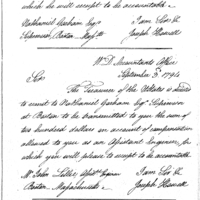 which he will except to be accountable
Nathaniel Gorham Esqr I am Sir &
Supervisor, Boston Massts Joseph Howell
W. D. Accountants Office
September 3d 1794
Sir
The Treasurer of the United States is directed
to remit to Nathaniel Gorham Esqr Supervisor
at Boston to be transmitted to you the sum of
two hundred dollars on account of compensation
allowed to you as an Assistant Engineer, for
which you will please to except to be accountable
Mr John Asst Engineer I am Sir &
Boston Massachusetts Joseph Howell